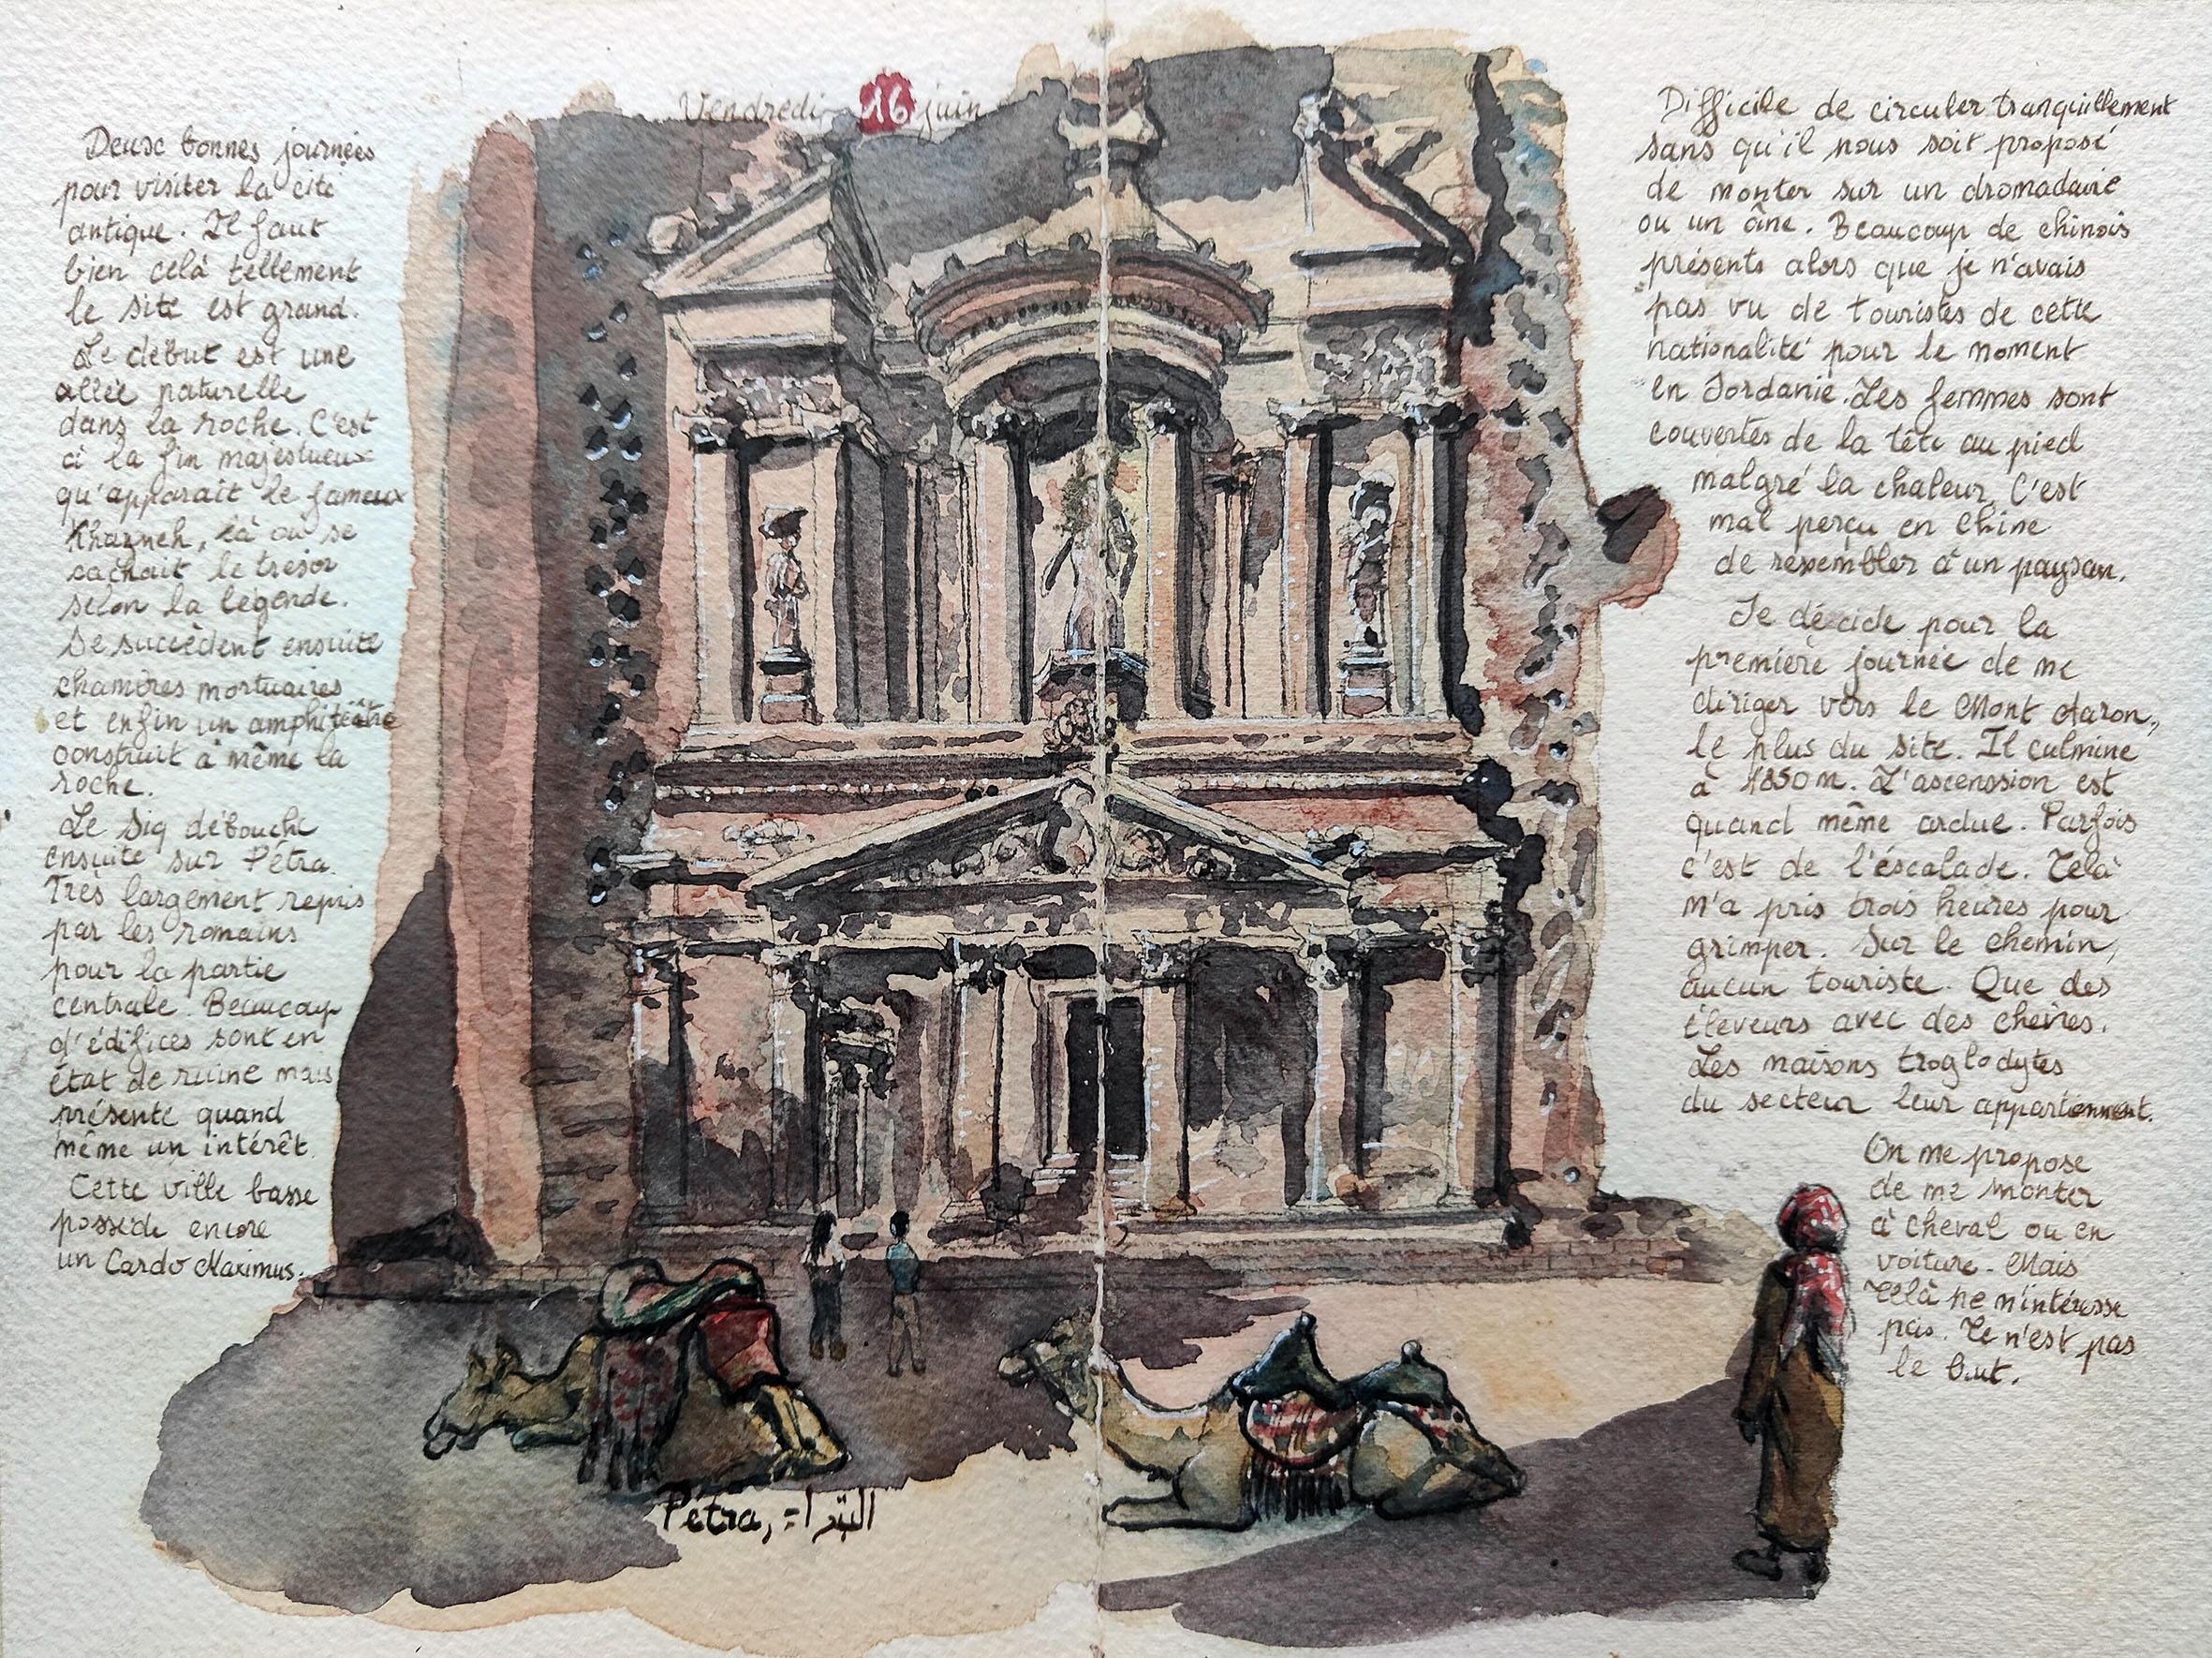 Vendredi 16 juin
Deux bonnes journées
pour visiter la cité
antique. Il faut
bien celà tellement
le site est grand.
Le début est une
allée naturelle
dans la roche. C'est
à la fin majestueux
qu'apparait le fameux
Khazneh, là où se
cachait le trésor
selon la légende.
Se succèdent ensuite
chambres mortuaires
et enfin un amphitéâtre
construit à même la
roche.
Le Siq débouche
ensuite sur Pétra.
Très largement repris
par les romains
pour la partie
centrale. Beaucoup
d'édifices sont en
état de ruine mais
présente quand
même un intérêt.
Cette ville basse
possède encore
un Cardo Maximus.
Difficile de circuler tranquillement
sans qu'il nous soit proposé
de monter sur un dromadaire
ou un âne. Beaucoup de chinois
présents alors que je n'avais
pas vu de touristes de cette
nationalité pour le moment
en Jordanie. Les femmes sont
couvertes de la tête au pied
malgré la chaleur. C'est
mal perçu en Chine
de ressembler à un paysan.
Je décide pour la
première journée de me
diriger vers le Mont Aaron,
le plus du site. Il culmine
à 1850 m. L'ascenssion est
quand même ardue. Parfois
c'est de l'éscalade. Celà
m'a pris trois heures pour
grimper. Sur le chemin,
aucun touriste. Que des
éleveurs avec des chèvres.
Les maisons troglodytes
du secteur leur appartiennent.
On me propose
de me monter
à cheval ou en
voiture. Mais
Celà ne m'intéresse
pas. Ce n'est pas
le but.
Pétra, البتراء